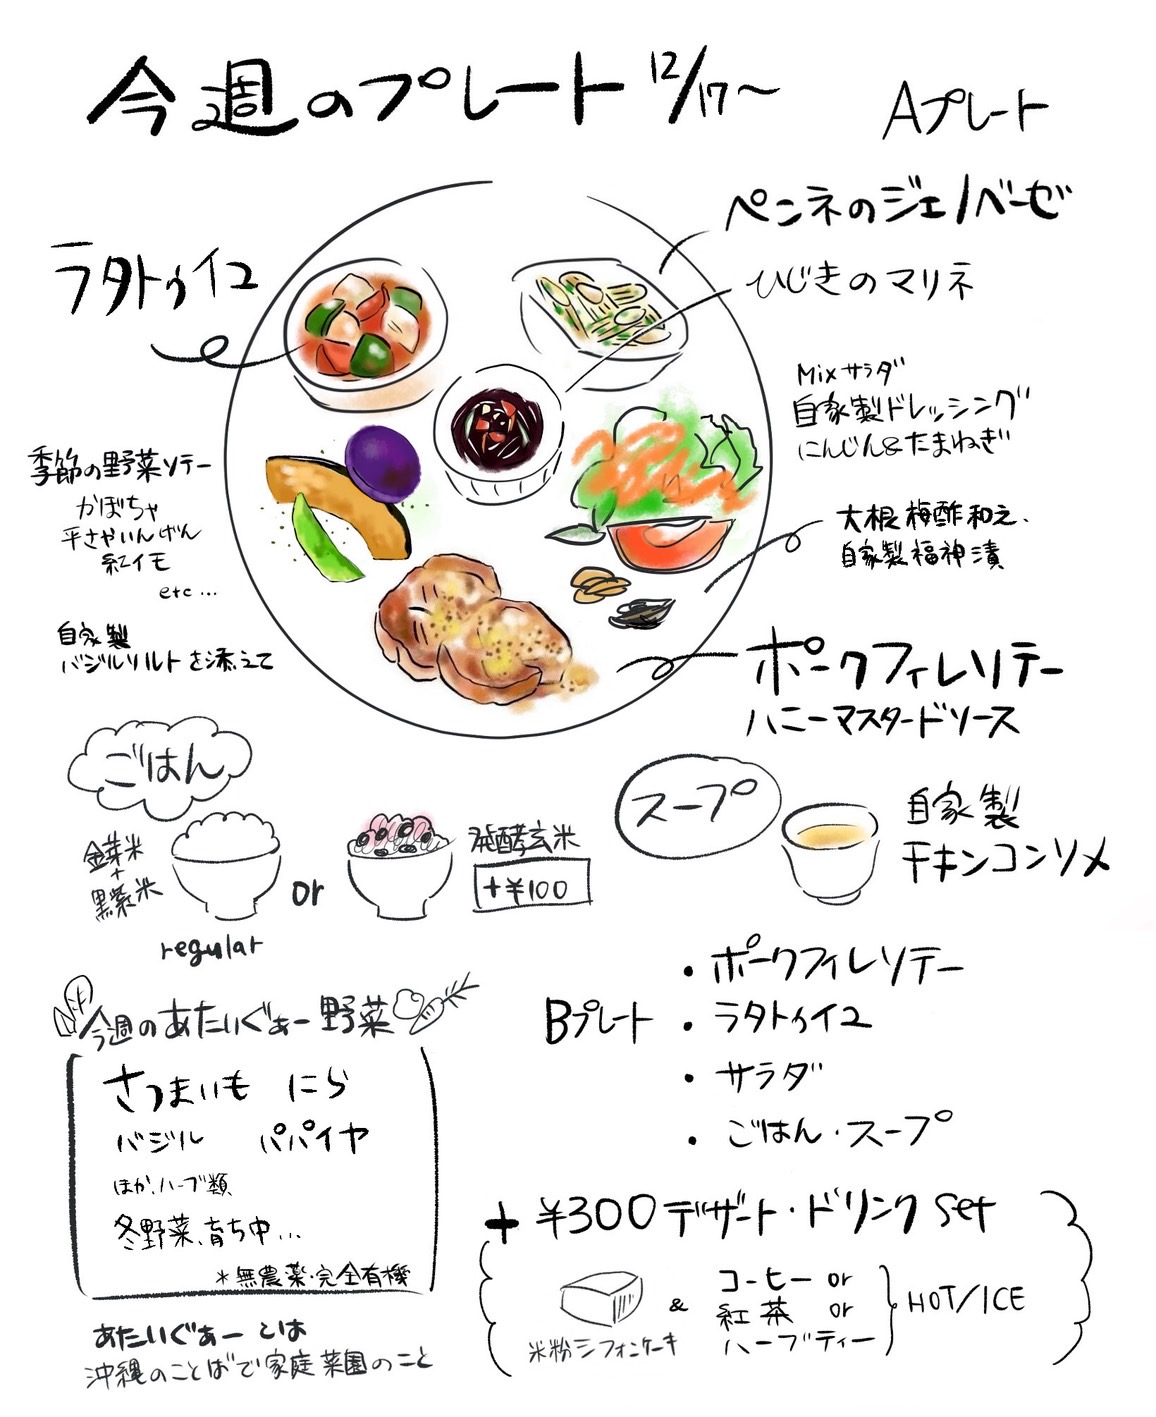 今週のプレート 12/17〜
Aプレート
ペンネのジェノベーゼ
ラタトゥイユ
ひじきのマリネ
Mixサラダ
自家製ドレッシング
にんじん&たまねぎ
季節の野菜ソテー
かぼちゃ
平さやいんげん
紅イモ
etc...
大根梅酢和え、
自家製福神漬
自家製
バジルソルトを添えて
ポークフィレソテー
ハニーマスタードソース
ごはん
金芽米
+
黒紫米
regular
or
発酵玄米
+¥100
スープ
自家製
チキンコンソメ
Bプレート
・ポークフィレソテー
・ラタトゥイユ
・サラダ
・ごはん・スープ
今週のあたいぐぁー野菜
さつまいも にら
バジル パパイヤ
ほか、ハーブ類
冬野菜、育ち中...
*無農薬・完全有機
あたいぐぁーとは
沖縄のことばで家庭菜園のこと
+ ¥300デザート・ドリンクset
米粉シフォンケーキ
&
コーヒー or
紅茶 or
ハーブティー
HOT/ICE